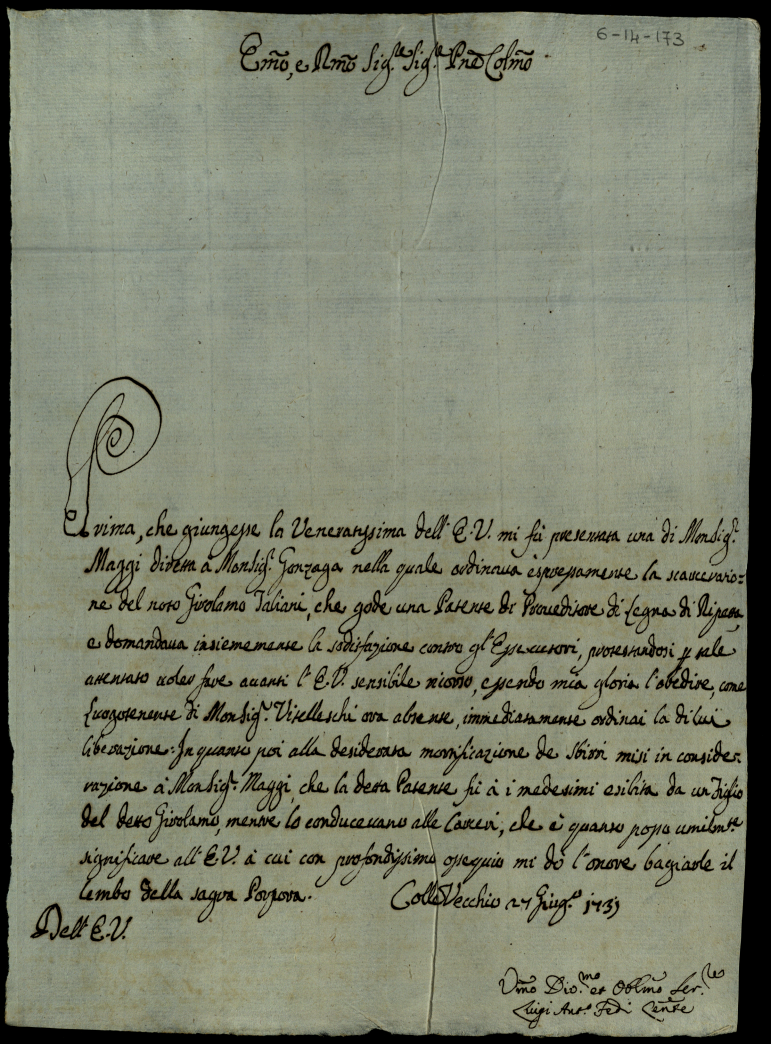 6-14-173
Em̃o, e Rm̃o Sig.re Sig.re Prõe Colm̃o
Prima, che giungesse la Veneratissima dell' E.V. mi fù presentata una di Monsig.r
Maggi diretta à Monsig.r Gonzaga nella quale ordinava espressamente la scarcerazio=
ne del noto Girolamo Taliani, che gode una Patente di Proveditore di Legna di Ripetta,
e domandava insiememente la sodisfazione contro gl' Essecutori, protestandosi p tale
attentato voler fare avanti l' E.V. sensibile ricorso, essendo mia gloria l'obedire, come
Luogotenente di Monsig.r Vitelleschi ora absente, immediatamente ordinai la di lui
liberazione. In quanto poi alla desiderata mortificazione de Sbirri misi in conside=
razione à Monsig.r Maggi, che la detta Patente fù à i medesimi esibita da un Figlio
del detto Girolamo, mentre lo conducevano alle Carceri, che è quanto posso umilmte
significare all' E.V. à cui con profondissimo ossequio mi dò l'onore bagiarle il
lembo della sagra Porpora. Colle Vecchio 27 Giug.o 1739
Dell' E.V.
Um̃o Div.mo et Oblm̃o Ser.re
Luigi Ant.o Fedi Tenẽte